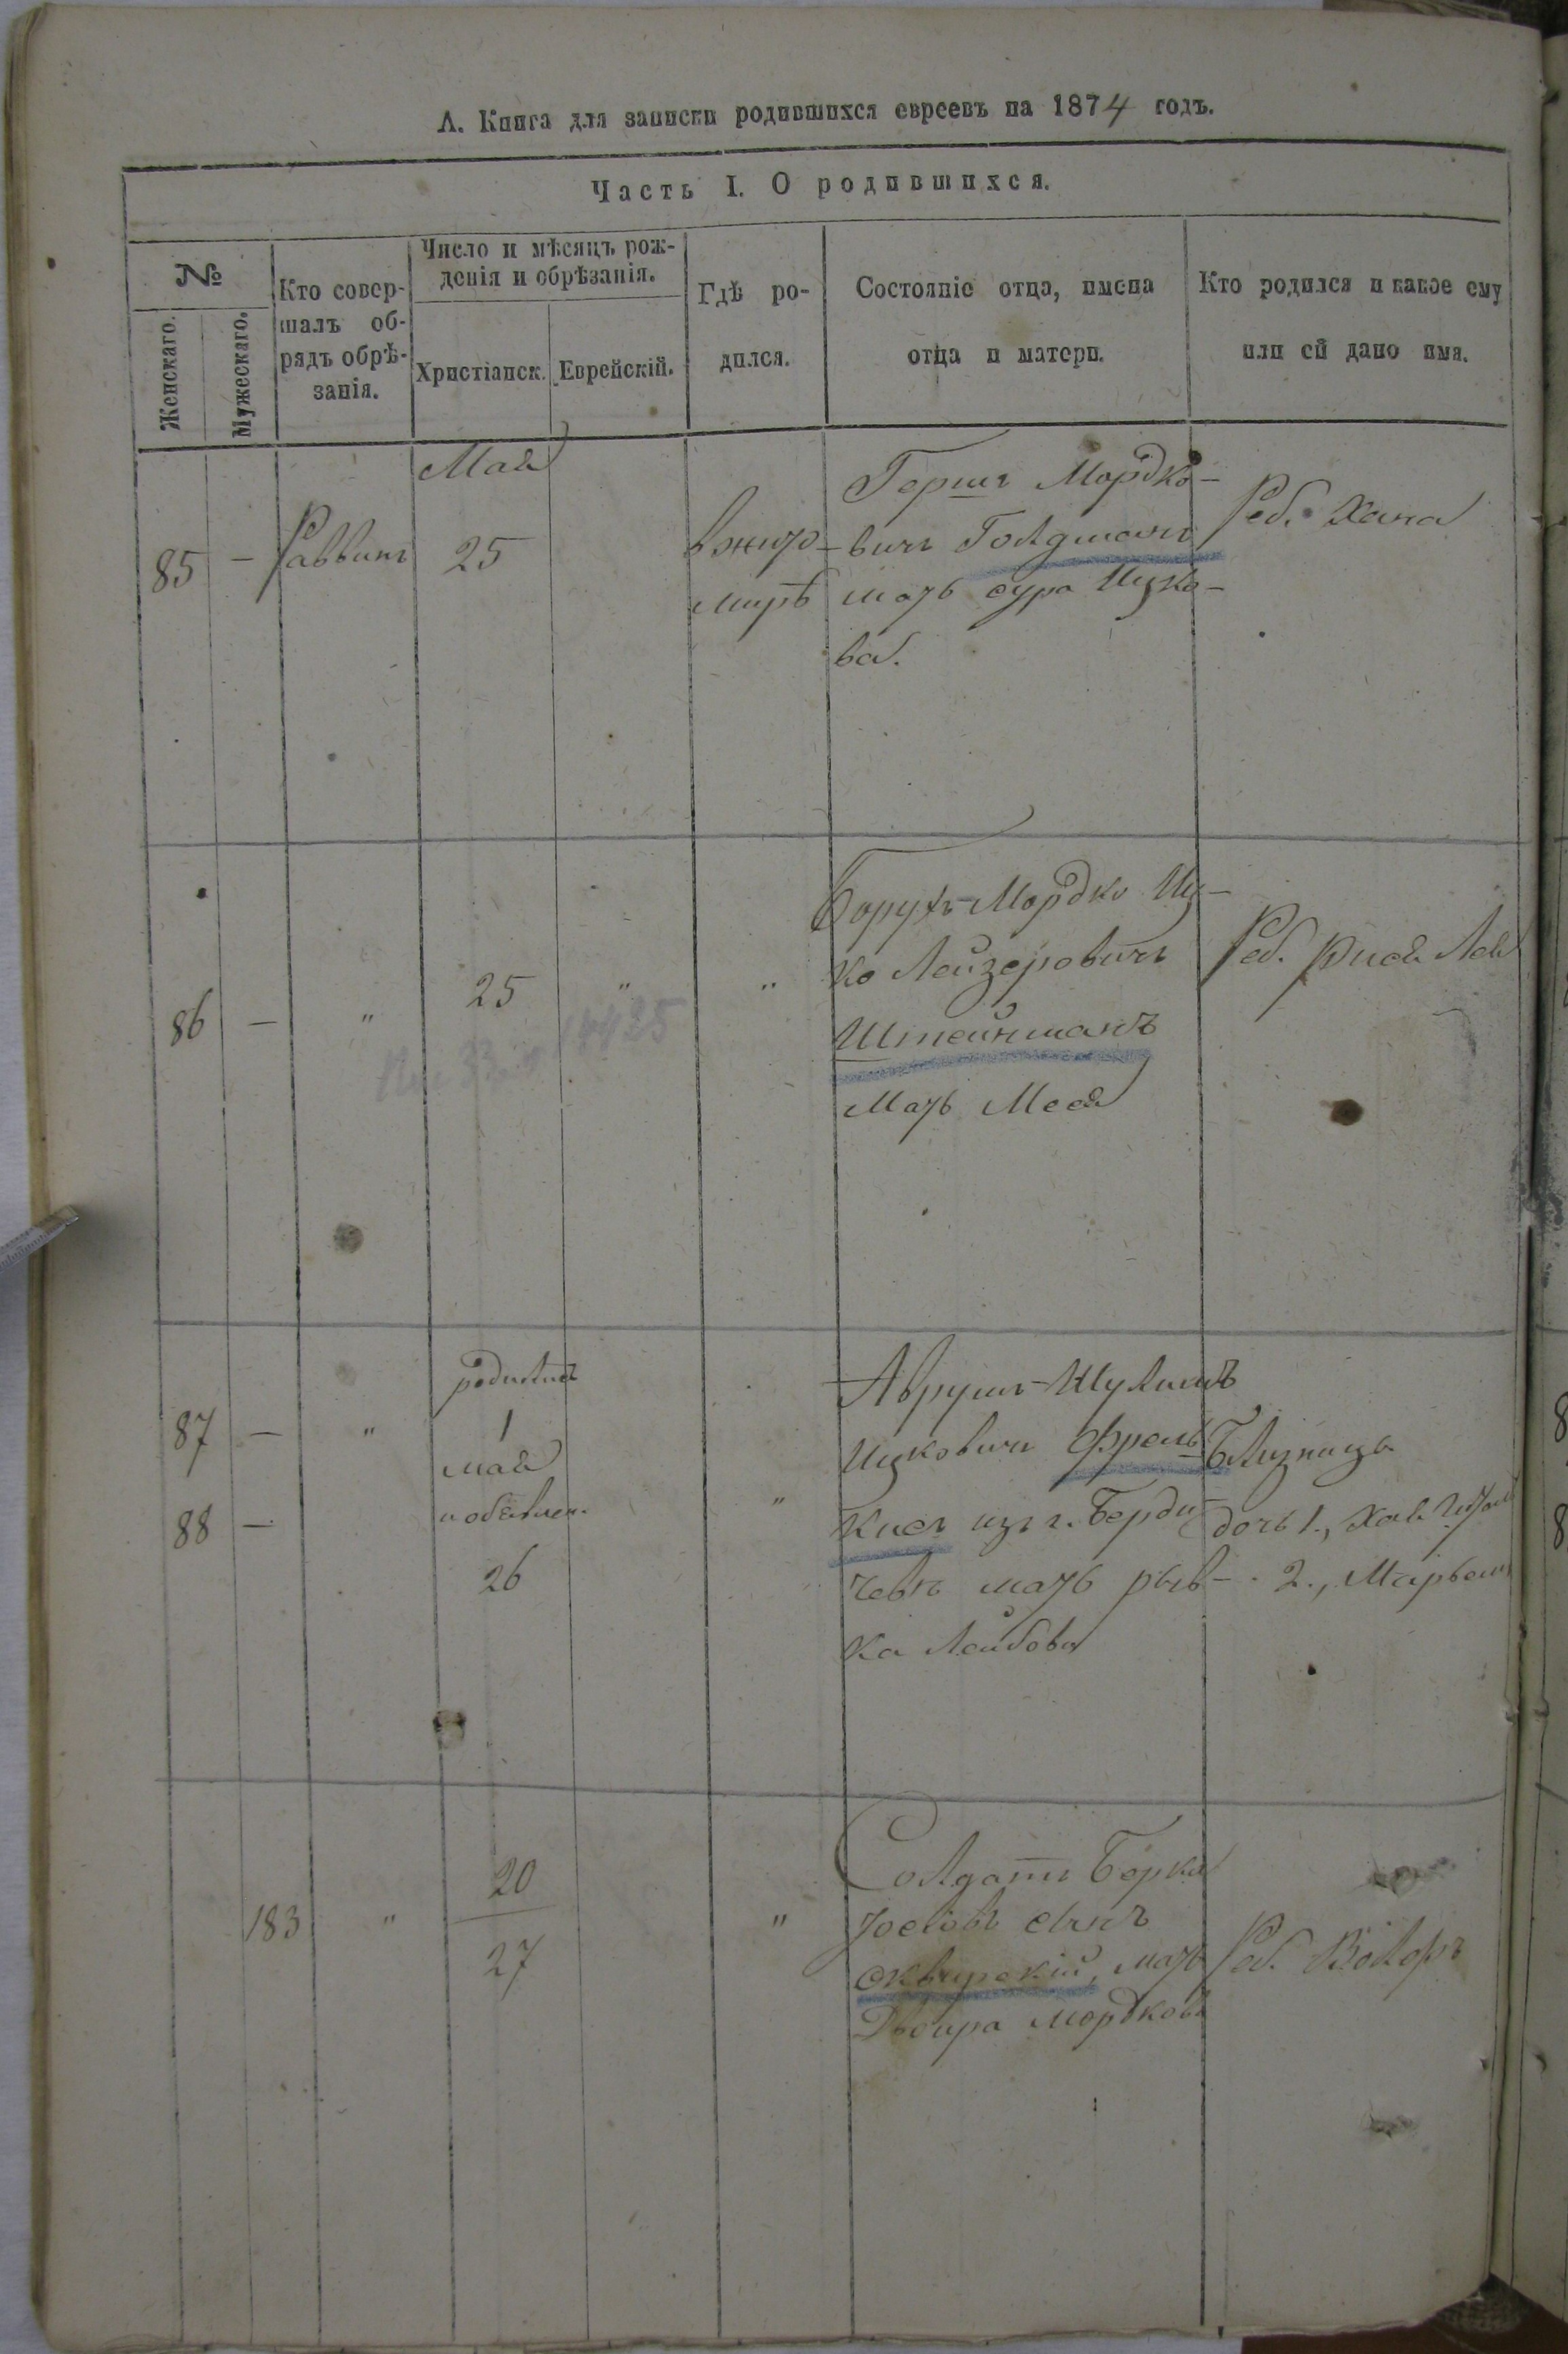 А. Книга для записки родившихся евреевъ на 1874 годъ.
Часть I. О родившихся.
№
Женскаго.
Мужескаго.
Кто совер-
шалъ об-
рядъ обрѣ-
занія.
Число и мѣсяцъ рож-
денія и обрѣзанія.
Христіанск.
Еврейскій.
Гдѣ ро-
дился.
Состояніе отца, имена
отца и матери.
Кто родился и какое ему
или ей дано имя.
85 — Раввинъ
Май
25
въ жито-
мирѣ
Гершъ Мордко-
вичъ Голдманъ
мать сура Ицко-
ва.
Реб. Хана
86 — " 25 " "
Борухъ-Мордко Иц-
ко Лейзеровичъ
Штейнманъ
Мать
Реб. Лея
87 — "
88 —
родились
1
май
и объявлен.
26
"
Аврумъ-Шулимъ
Ицковичъ Френ
кисъ изъ г. Берди-
чевъ мать рыв-
ка Лейбова
Близнецы
дочь 1., Хая
2., Марьем
183 "
20
27
"
Солдатъ Берко
Іосіовъ сынъ
Сквирскій, мать
Двойра мордкова
Реб. Волфъ